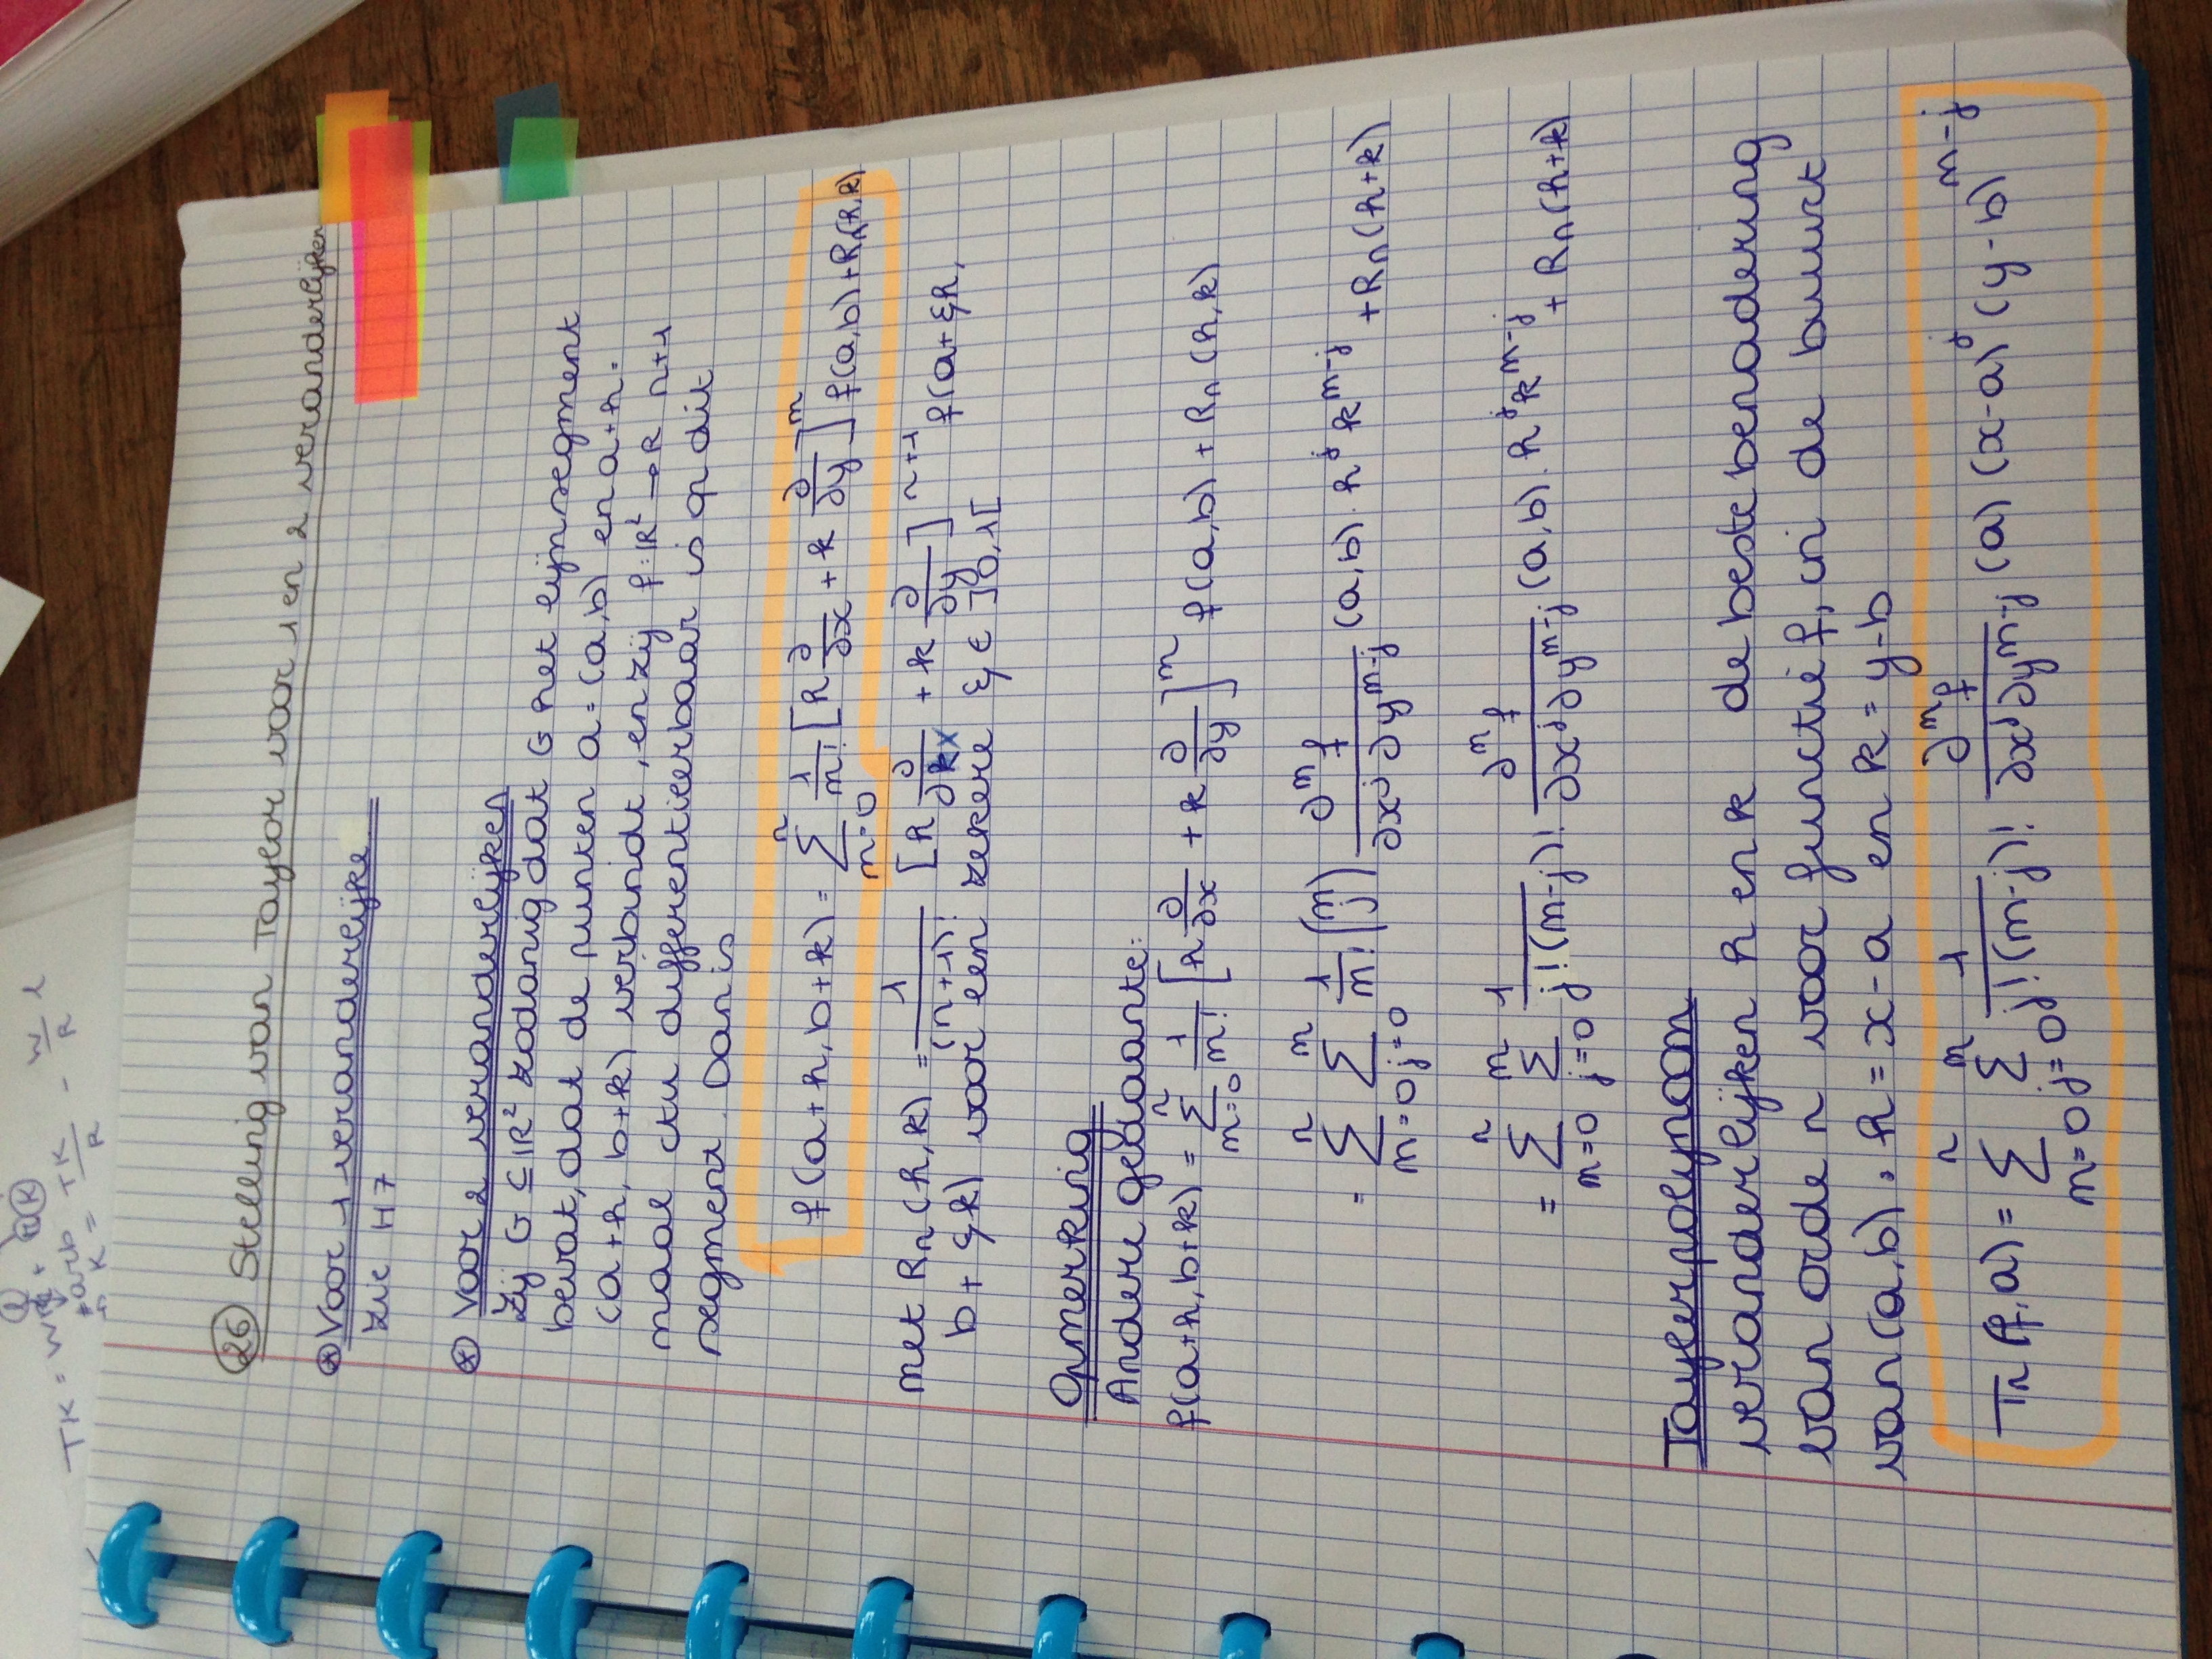 26 Stelling van Taylor voor 1 en 2 veranderlijken
⊛ Voor 1 veranderlijke
zie H7
⊛ Voor 2 veranderlijken
Zij G ⊆ ℝ² zodanig dat G het lijnsegment
bevat, dat de punten a = (a,b) en a+h =
(a+h, b+k) verbindt, en zij f: ℝ² → ℝ n+1
maal ctu differentieerbaar is op dit
segment. Dan is
f(a+h, b+k) = ∑_{m=0}^{n} 1/m! [h ∂/∂x + k ∂/∂y]^m f(a,b) + Rn(h,k)
met Rn(h,k) = 1/(n+1)! [h ∂/∂x + k ∂/∂y]^{n+1} f(a+ξh,
b+ξk) voor een zekere ξ ∈ ]0,1[
Opmerking
Andere gedaante:
f(a+h, b+k) = ∑_{m=0}^{n} 1/m! [h ∂/∂x + k ∂/∂y]^m f(a,b) + Rn(h,k)
= ∑_{m=0}^{n} ∑_{j=0}^{m} 1/m! (m j) ∂^m f/∂x^j ∂y^{m-j} (a,b). h^j k^{m-j} + Rn(h+k)
= ∑_{m=0}^{n} ∑_{j=0}^{m} 1/j!(m-j)! ∂^m f/∂x^j ∂y^{m-j} (a,b). h^j k^{m-j} + Rn(h+k)
Taylerpolynoom de beste benadering
veranderlijken h en k
van orde n voor functie f, in de buurt
van (a,b), h = x-a en k = y-b
Tn(f,a) = ∑_{m=0}^{n} ∑_{j=0}^{m} 1/j!(m-j)! ∂^m f/∂x^j ∂y^{m-j} (a) (x-a)^j (y-b)^{m-j}